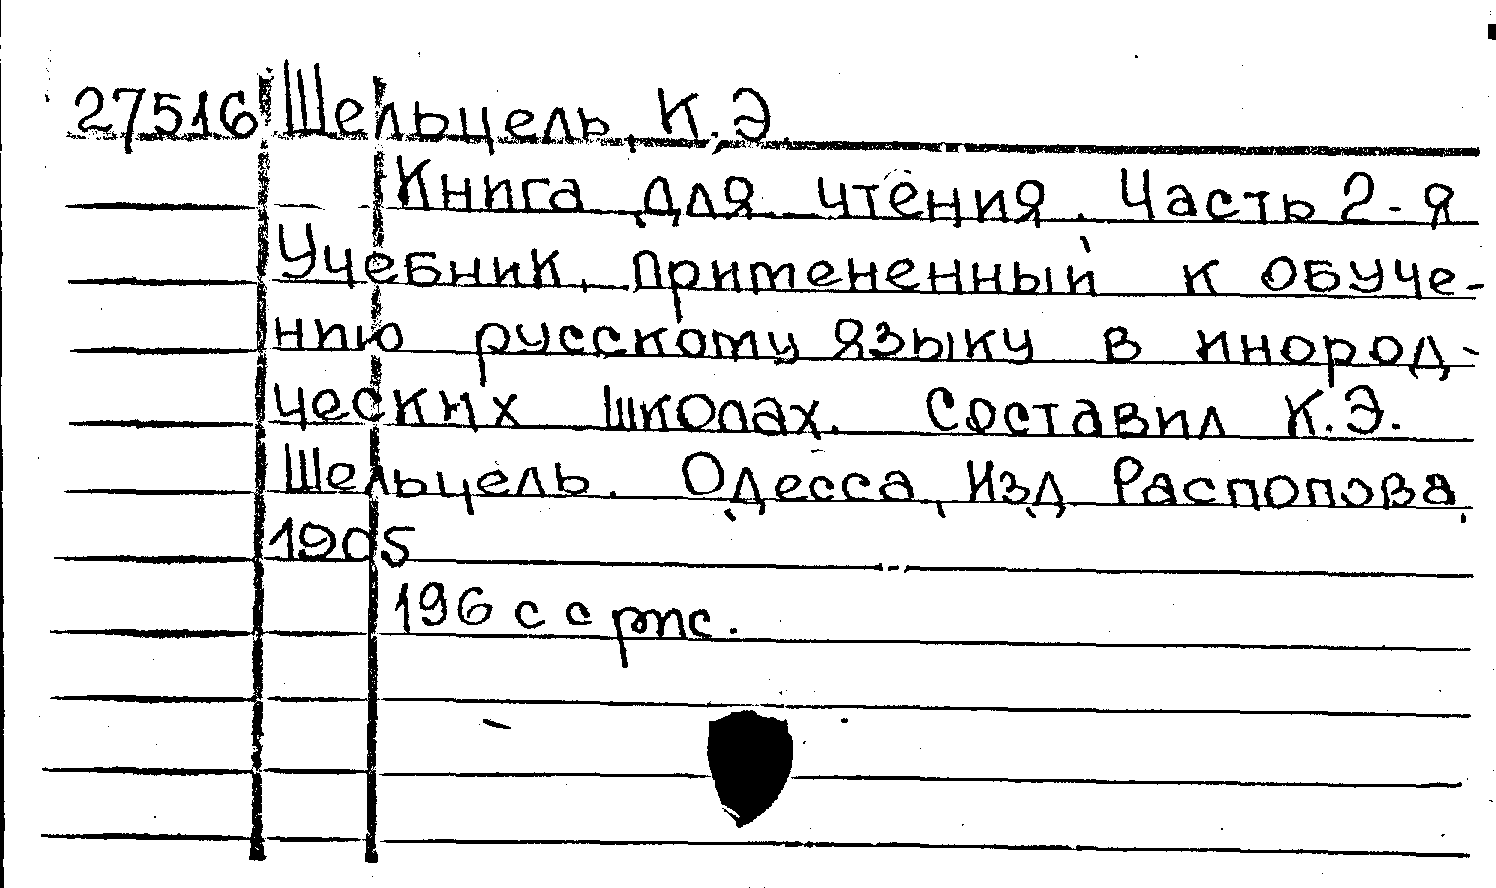 27516 Шельцель, К.Э.
Книга для чтения. Часть 2-я
Учебник, примененный к обуче-
нию русскому языку в инород-
ческих школах. Составил К.Э.
Шельцель. Одесса, Изд. Распопова,
1905
196 с с рис.